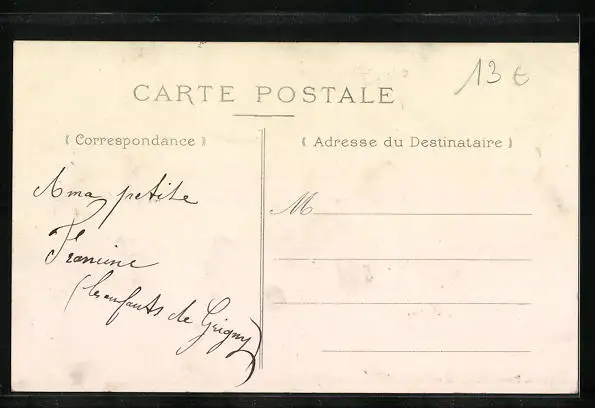 13 €
CARTE POSTALE
( Correspondance )
( Adresse du Destinataire )
A ma petite
Francine
(les enfants de Grigny)
M